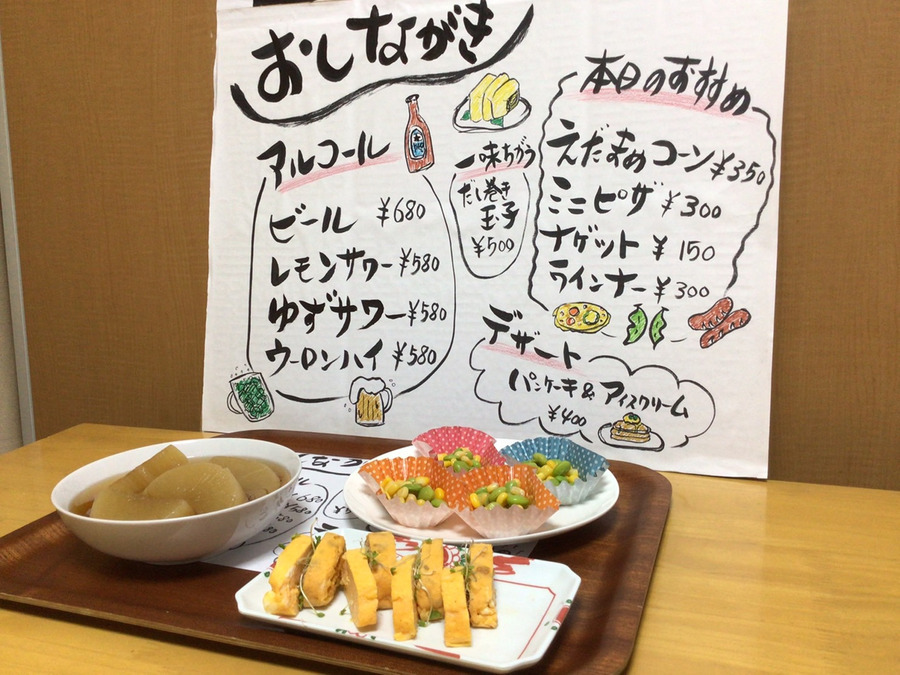 おしながき
アルコール
ビール ¥680
レモンサワー ¥580
ゆずサワー ¥580
ウーロンハイ ¥580
一味ちがう
だし巻き
玉子
¥500
本日のおすすめ
えだまめコーン ¥350
ミニピザ ¥300
ナゲット ¥150
ウインナー ¥300
デザート
パンケーキ&アイスクリーム
¥400